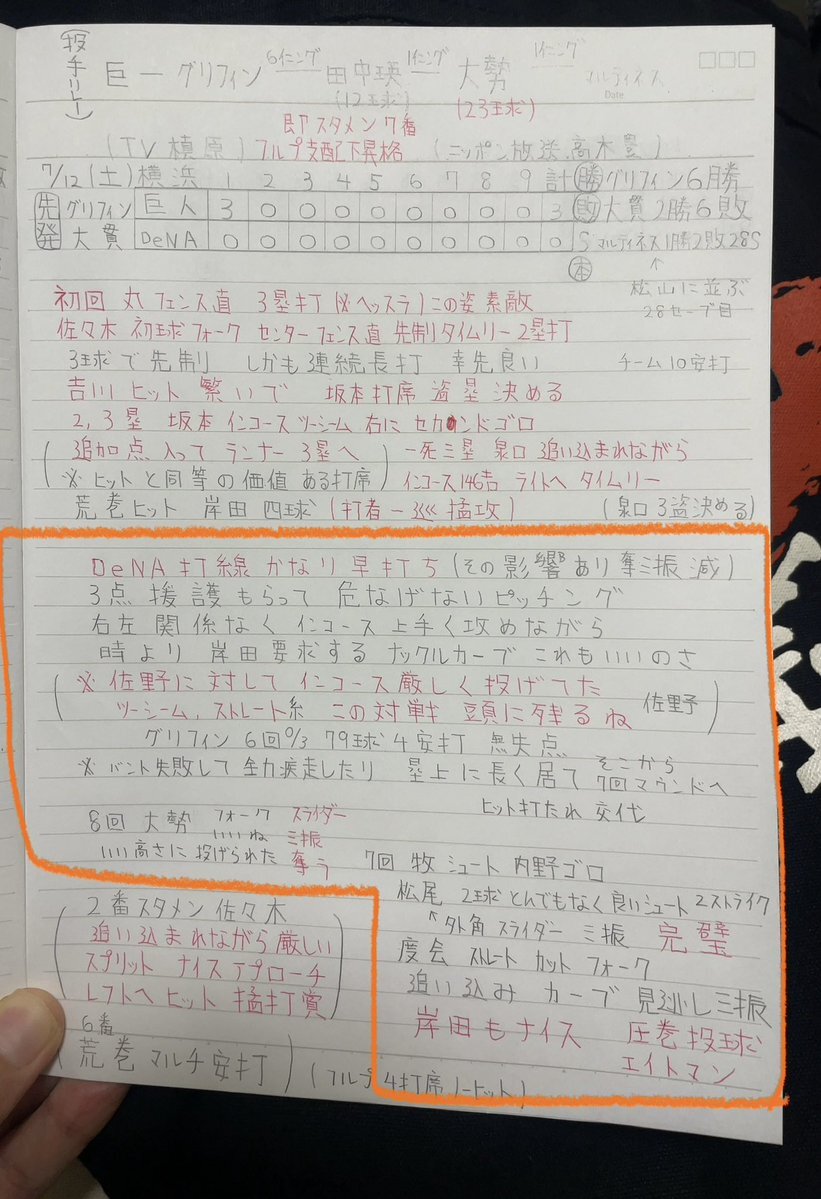 (投手リレー) 巨ーグリフィン 6イニング 田中瑛 1イニング 大勢 1イニング マルティネス
Date
(12球) (23球)
即スタメン7番
(TV 槙原) フルプ支配下昇格 (ニッポン放送 高木豊)
7/12(土) 横浜 1 2 3 4 5 6 7 8 9 計 勝 グリフィン6勝
先発 グリフィン 巨人 3 0 0 0 0 0 0 0 0 3 敗 大貫 2勝6敗
大貫 DeNA 0 0 0 0 0 0 0 0 0 0 S マルティネス1勝2敗28S
本
↑
松山に並ぶ
28セーブ目
初回 丸 フェンス直 3塁打 (※ヘッスラ) この姿 素敵
佐々木 初球フォーク センターフェンス直 先制タイムリー2塁打
3球で先制 しかも3連続長打 幸先良い チーム10安打
吉川 ヒット 繋いで 坂本打席 盗塁 決める
2,3塁 坂本 インコース ツーシーム 右に セカンドゴロ
(追加点 入って ランナー 3塁へ
※ヒットと同等の価値 ある打席)
一死三塁 泉口 追い込まれながら
インコース146㌔ ライトへ タイムリー
荒巻ヒット 岸田 四球 (打者一巡 猛攻) (泉口 3盗決める)
DeNA 打線 かなり 早打ち (その影響あり 奪三振 減)
3点 援護 もらって 危なげない ピッチング
右左 関係なく インコース 上手く 攻めながら
時より 岸田 要求する ナックルカーブ これもいいのさ
(※ 佐野に対して インコース 厳しく 投げてた
ツーシーム、ストレート系 この対戦 頭に残るね 佐野)
グリフィン 6回0/3 79球 4安打 無失点
※バント失敗して 全力疾走したり 塁上に長く居て そこから 7回マウンドへ
ヒット打たれ 交代
8回 大勢 フォーク スライダー
いいね 三振
いい高さに 投げられた 奪う
7回 牧 シュート 内野ゴロ
松尾 2球 とんでもなく 良いシュート 2ストライク
↑外角 スライダー 三振 完璧
度会 ストレート カット フォーク
追い込み カーブ 見逃し三振
岸田もナイス 圧巻投球
エイトマン
(2番スタメン 佐々木
追い込まれながら 厳しい
スプリット ナイスアプローチ
レフトへヒット 猛打賞)
6番
(荒巻 マルチ安打) (フルプ 4打席1ヒット)